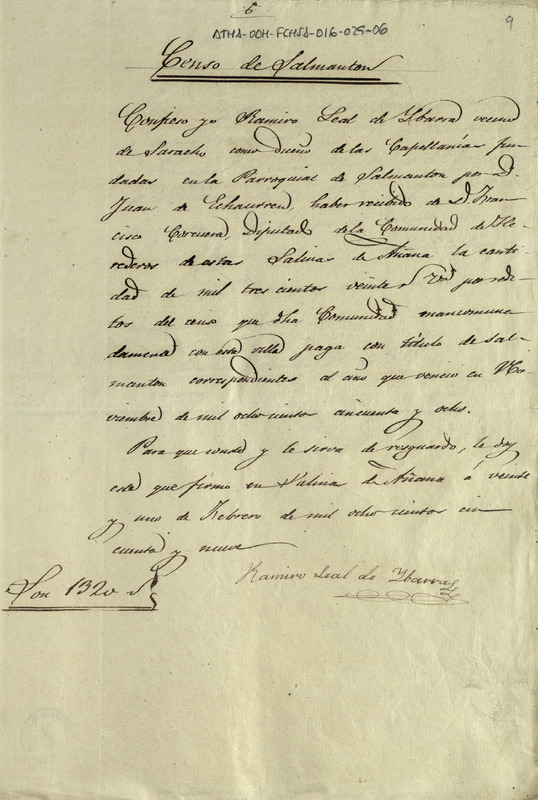 6
ATHA-DOH-FCHSA-016-029-06
9
Censo de Salmanton
Confieso yo Ramiro Leal de Ybarra vecino
de Saracho como dueño de las Capellanías fun
dadas en la Parroquial de Salmanton por D.
Juan de Echaurren, haber recibido de D. Fran
cisco Corcuera, Diputado de la Comunidad de He-
rederos de estas Salinas de Añana la canti-
dad de mil trescientos veinte r.s v.n por redi-
tos del censo que dha Comunidad mancomuna
damente con esta villa paga con título de Sal-
manton correspondientes al año que vencio en No-
viembre de mil ochocientos cincuenta y ocho.
Para que conste y le sirva de resguardo, le doy
este que firmo en Salinas de Añana á veinte
y uno de Febrero de mil ochocientos cin
cuenta y nueve
Son 1320 r.s
Ramiro Leal de Ybarra